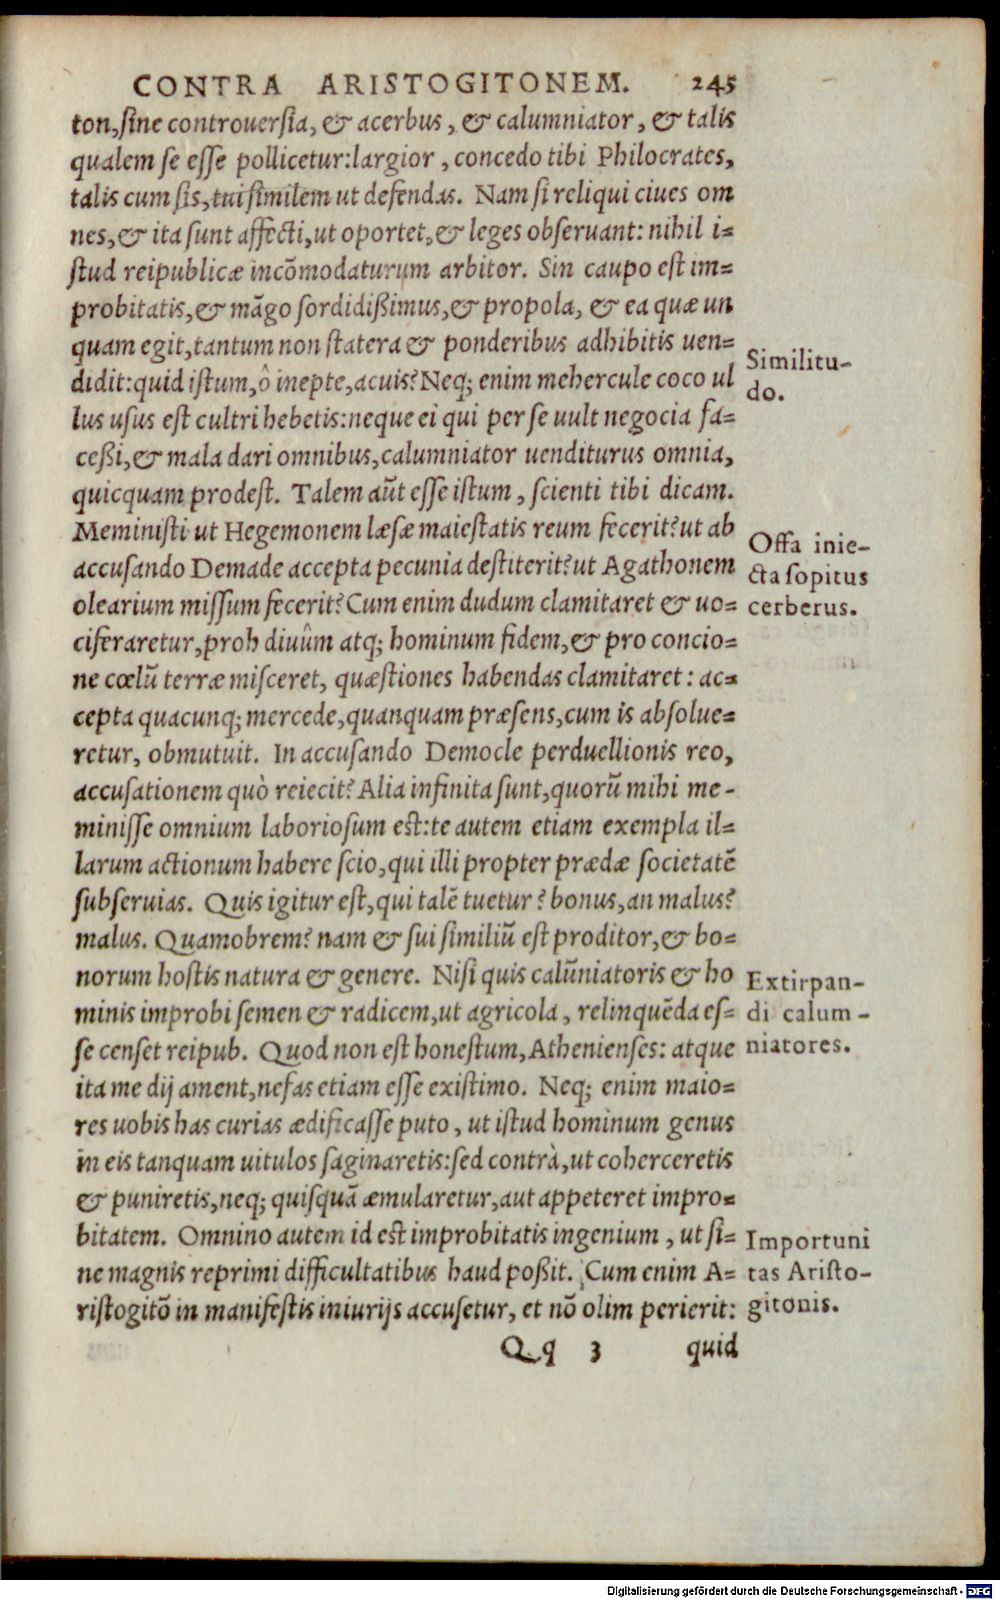 CONTRA ARISTOGITONEM. 245
ton, sine controuersia, & acerbus, & calumniator, & talis
qualem se esse pollicetur: largior, concedo tibi Philocrates,
talis cum sis, tui similem ut defendas. Nam si reliqui ciues om
nes, & ita sunt affecti, ut oportet, & leges obseruant: nihil i=
stud reipublicæ incōmodaturum arbitor. Sin caupo est im=
probitatis, & māgo sordidißimus, & propola, & ea quæ un
quam egit, tantum non statera & ponderibus adhibitis uen=
didit: quid istum, ô inepte, acuis? Neq; enim mehercule coco ul
lus usus est cultri hebetis: neque ei qui per se uult negocia fa=
ceßi, & mala dari omnibus, calumniator uenditurus omnia,
quicquam prodest. Talem aūt esse istum, scienti tibi dicam.
Meministi ut Hegemonem læsæ maiestatis reum fecerit? ut ab
accusando Demade accepta pecunia destiterit? ut Agathonem
olearium missum fecerit? Cum enim dudum clamitaret & uo=
ciferaretur, proh diuûm atq; hominum fidem, & pro concio=
ne cœlū terræ misceret, quæstiones habendas clamitaret: ac=
cepta quacunq; mercede, quanquam præsens, cum is absolue=
retur, obmutuit. In accusando Democle perduellionis reo,
accusationem quò reiecit? Alia infinita sunt, quorū mihi me-
minisse omnium laboriosum est: te autem etiam exempla il=
larum actionum habere scio, qui illi propter prædæ societatē
subseruias. Quis igitur est, qui talē tuetur? bonus, an malus?
malus. Quamobrem? nam & sui similiū est proditor, & bo=
norum hostis natura & genere. Nisi quis calūniatoris & ho
minis improbi semen & radicem, ut agricola, relinquēda es=
se censet reipub. Quod non est honestum, Athenienses: atque
ita me dij ament, nefas etiam esse existimo. Neq; enim maio=
res uobis has curias ædificasse puto, ut istud hominum genus
in eis tanquam uitulos saginaretis: sed contrà, ut coherceretis
& puniretis, neq; quisquā æmularetur, aut appeteret impro=
bitatem. Omnino autem id est improbitatis ingenium, ut si=
ne magnis reprimi difficultatibus haud poßit. Cum enim A=
ristogitō in manifestis iniurijs accusetur, et nō olim perierit:
Qq 3 quid
Similitu-
do.
Offa inie-
cta sopitus
cerberus.
Extirpan-
di calum-
niatores.
Importuni
tas Aristo-
gitonis.
Digitalisierung gefördert durch die Deutsche Forschungsgemeinschaft - DFG